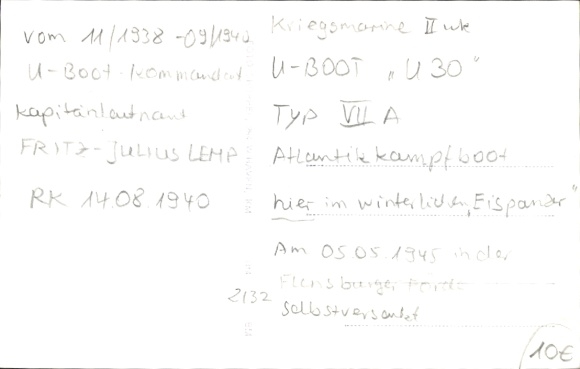 vom 11/1938 - 09/1940
U-Boot-Kommandant
Kapitänleutnant
FRITZ-JULIUS LEMP
RK 14.08.1940
Kriegsmarine II WK
U-BOOT „U 30"
Typ VII A
Atlantikkampfboot
hier im winterlichen „Eispanzer"
Am 05.05.1945 in der
Flensburger Förde
selbstversenkt
2132
10€